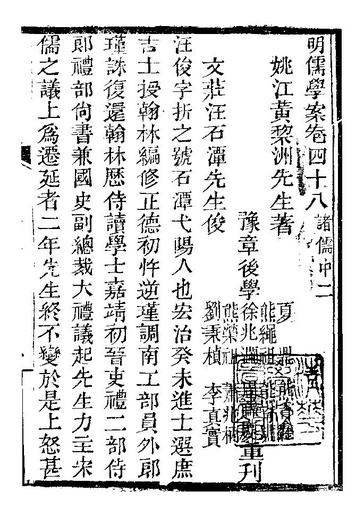 明儒學案卷四十八 諸儒中二
姚江黃黎洲先生著
豫章後學
夏
熊繩祖
徐兆
熊榮祖 蕭兆柄
劉秉楨 李真實
重刊
文莊汪石潭先生俊
汪俊字折之號石潭弋陽人也宏治癸未進士選庶
吉士授翰林編修正德初忤逆瑾調南工部員外郎
瑾誅復還翰林歷侍讀學士嘉靖初晉吏禮二部侍
郎禮部尚書兼國史副總裁大禮議起先生力主宋
儒之議上爲遷延者二年先生終不變於是上怒甚